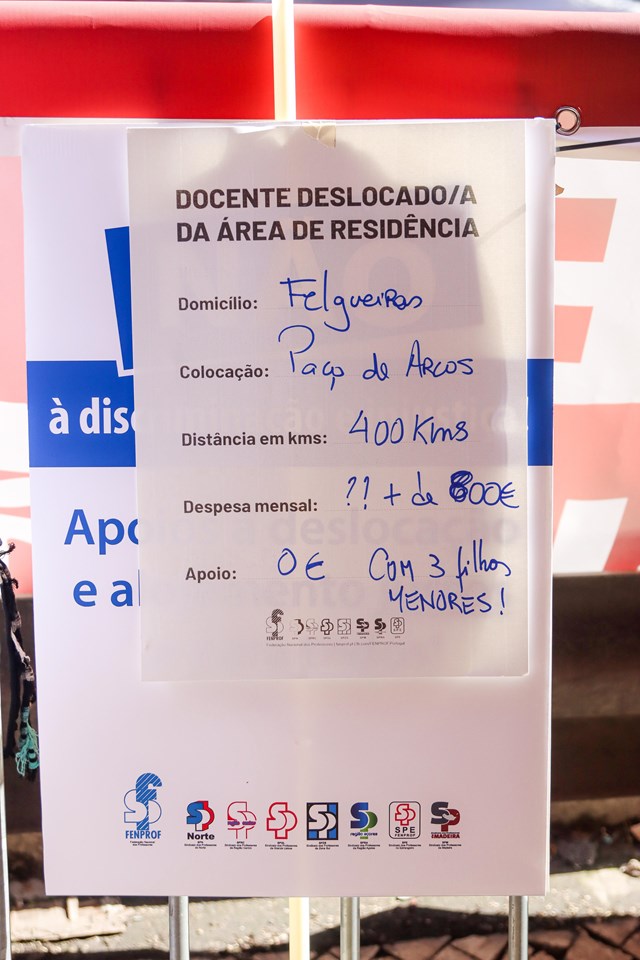 DOCENTE DESLOCADO/A
DA ÁREA DE RESIDÊNCIA
Domicílio: Felgueiras
Colocação: Paço de Arcos
Distância em kms: 400 Kms
Despesa mensal: ?? + de 800€
Apoio: 0€ COM 3 filhos
MENORES!
FENPROF
à disc
Apo a deslocação
e al
FENPROF
Norte
SPE
FENPROF
MADEIRA